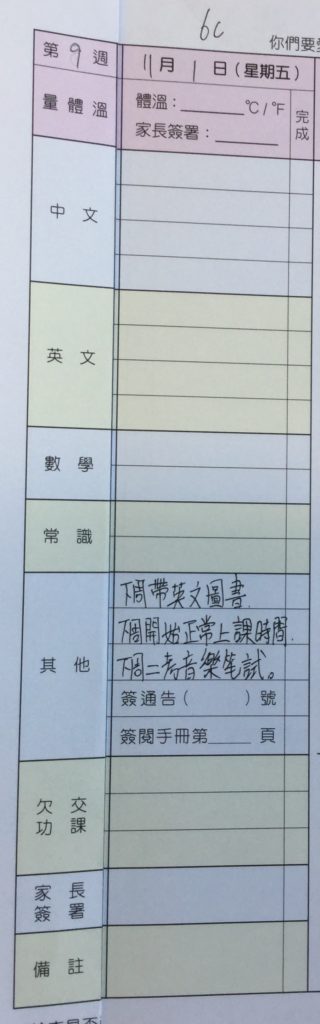 6C
你們要
第 9 週
11月 1 日(星期五)
量體溫
體溫:______℃/℉
家長簽署:______
完成
中文
英文
數學
常識
其他
下周帶英文圖書.
下周開始正常上課時間.
下周二考音樂笔試。
簽通告( )號
簽閱手冊第____頁
欠交功課
家長簽署
備註